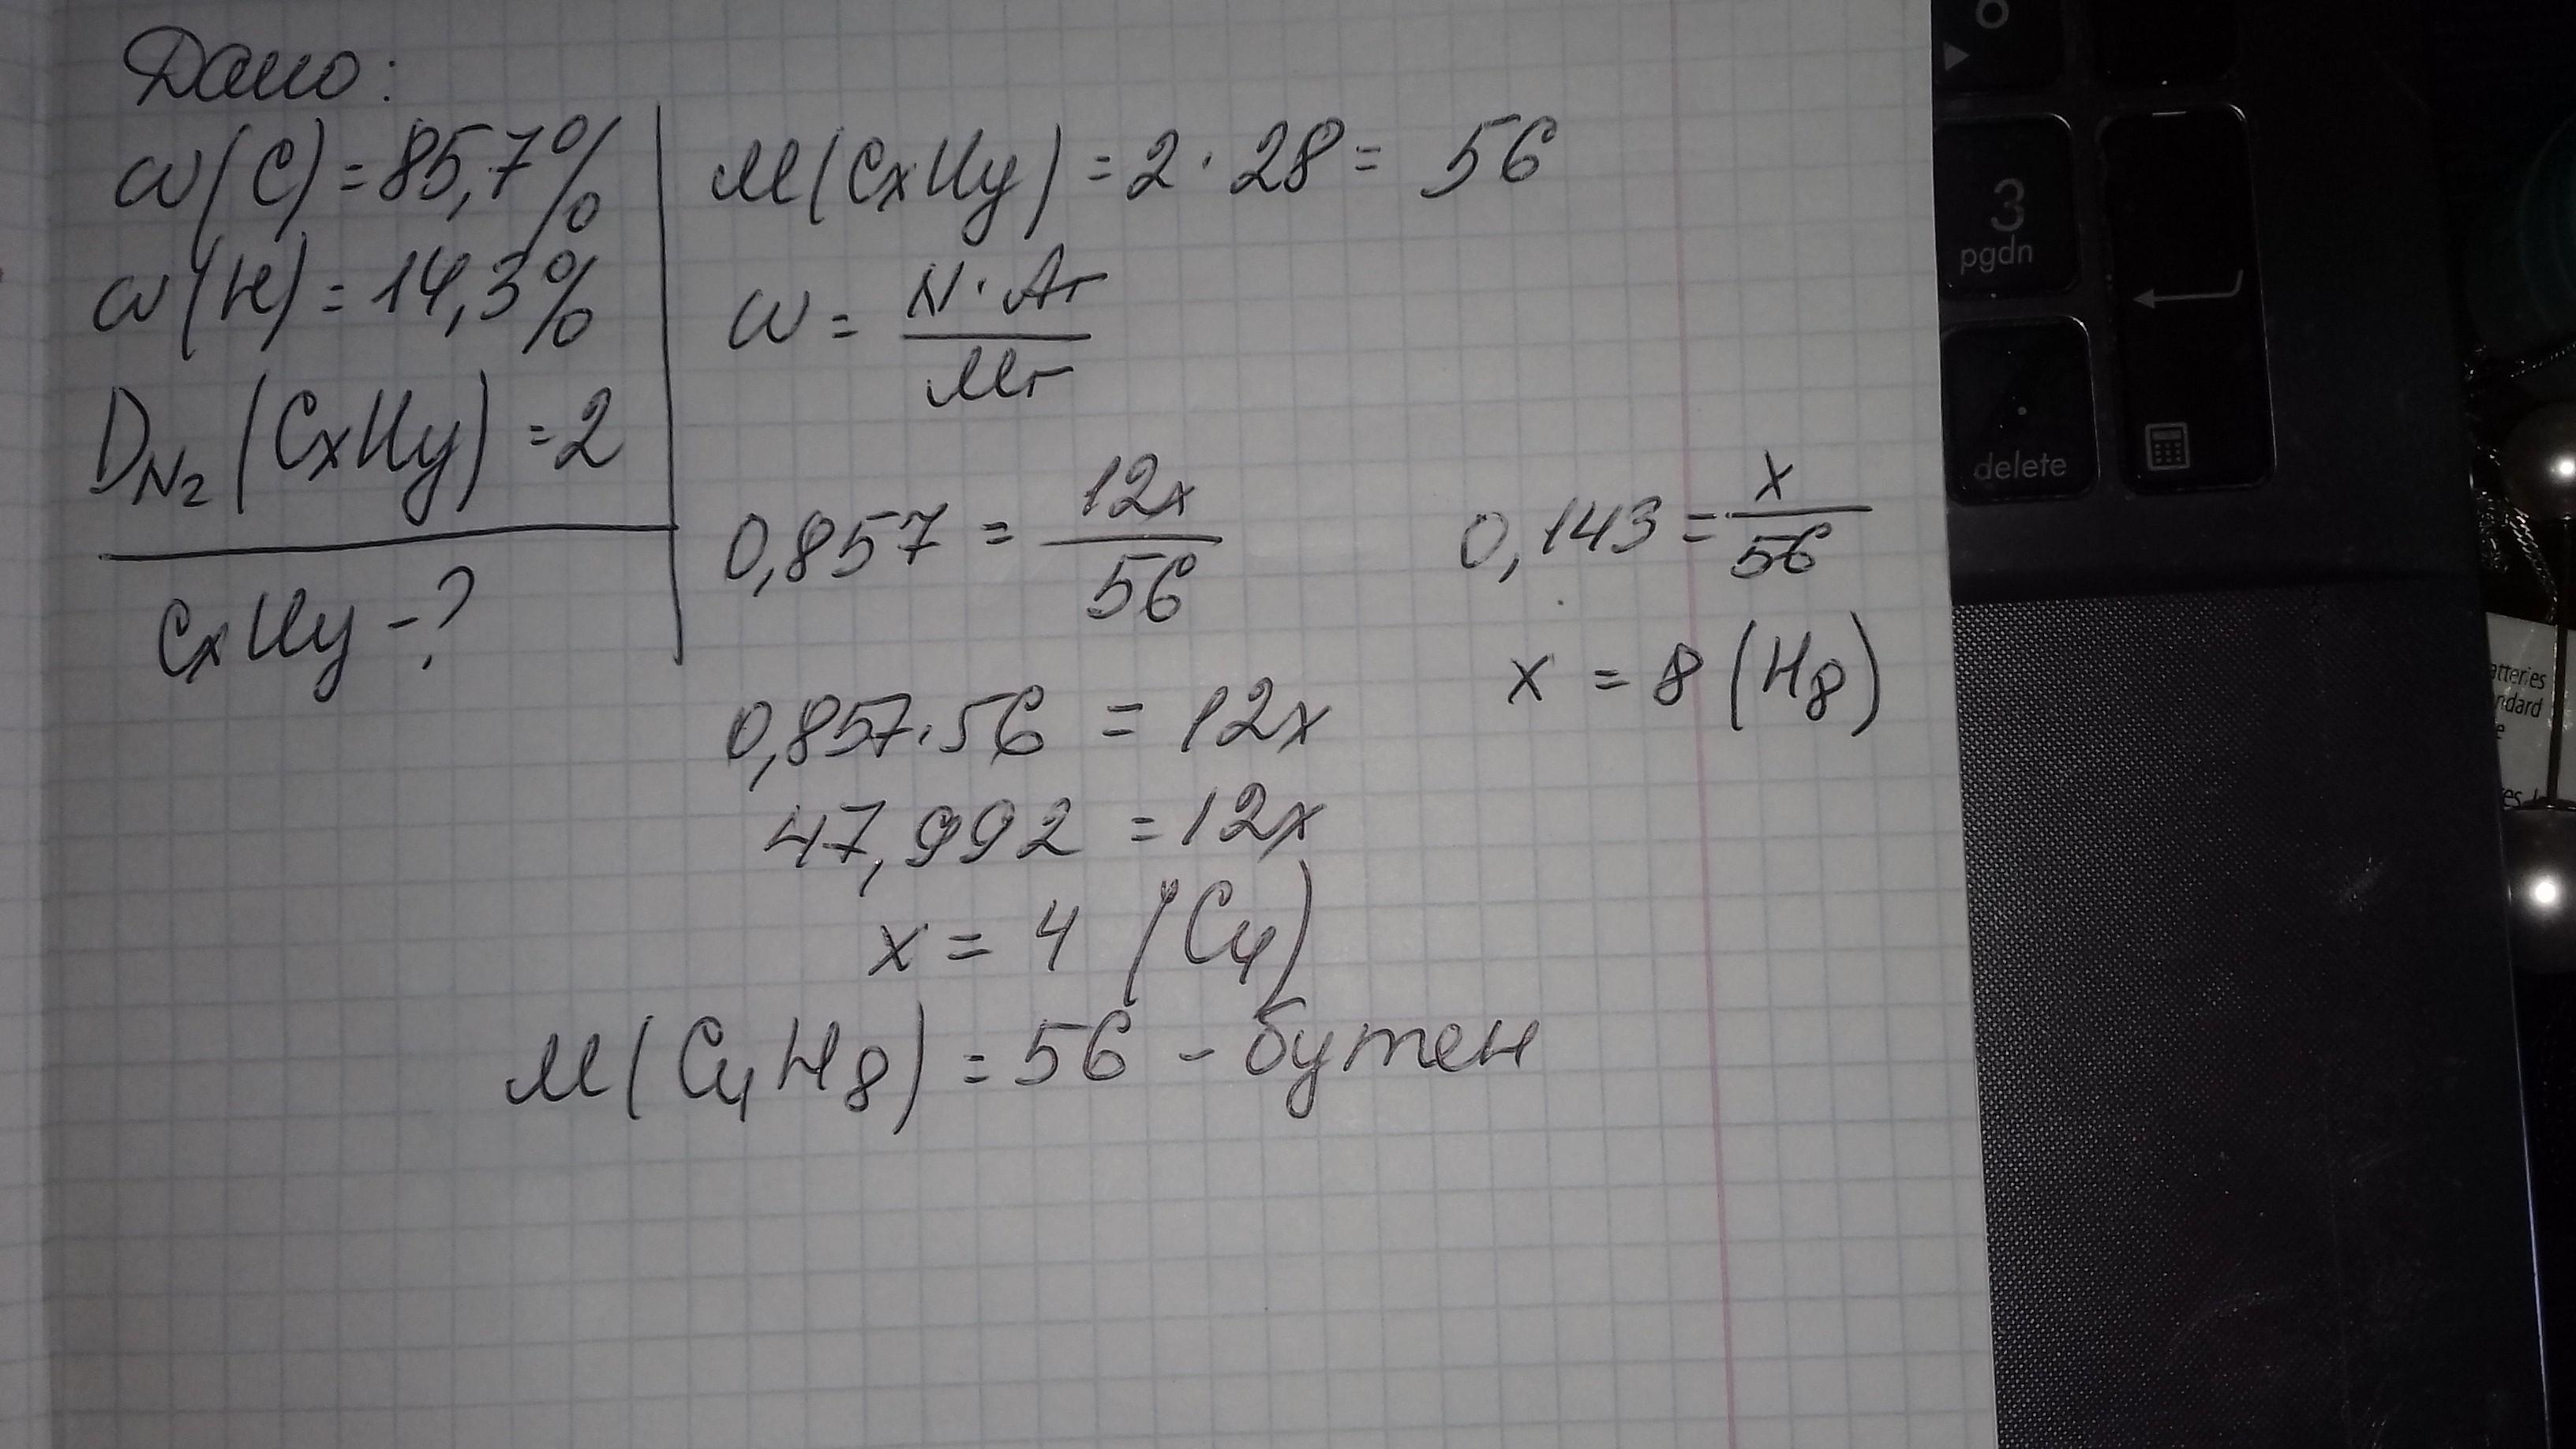 Дано:
ω(C) = 85,7%
ω(H) = 14,3%
D_N₂(CxHy) = 2
CxHy - ?
M(CxHy) = 2 · 28 = 56
ω = N · Ar / Mr
0,857 = 12x / 56
0,857 · 56 = 12x
47,992 = 12x
x = 4 (C₄)
0,143 = x / 56
x = 8 (H₈)
M(C₄H₈) = 56 - бутен
3
pgdn
.
delete
atteries
ndard